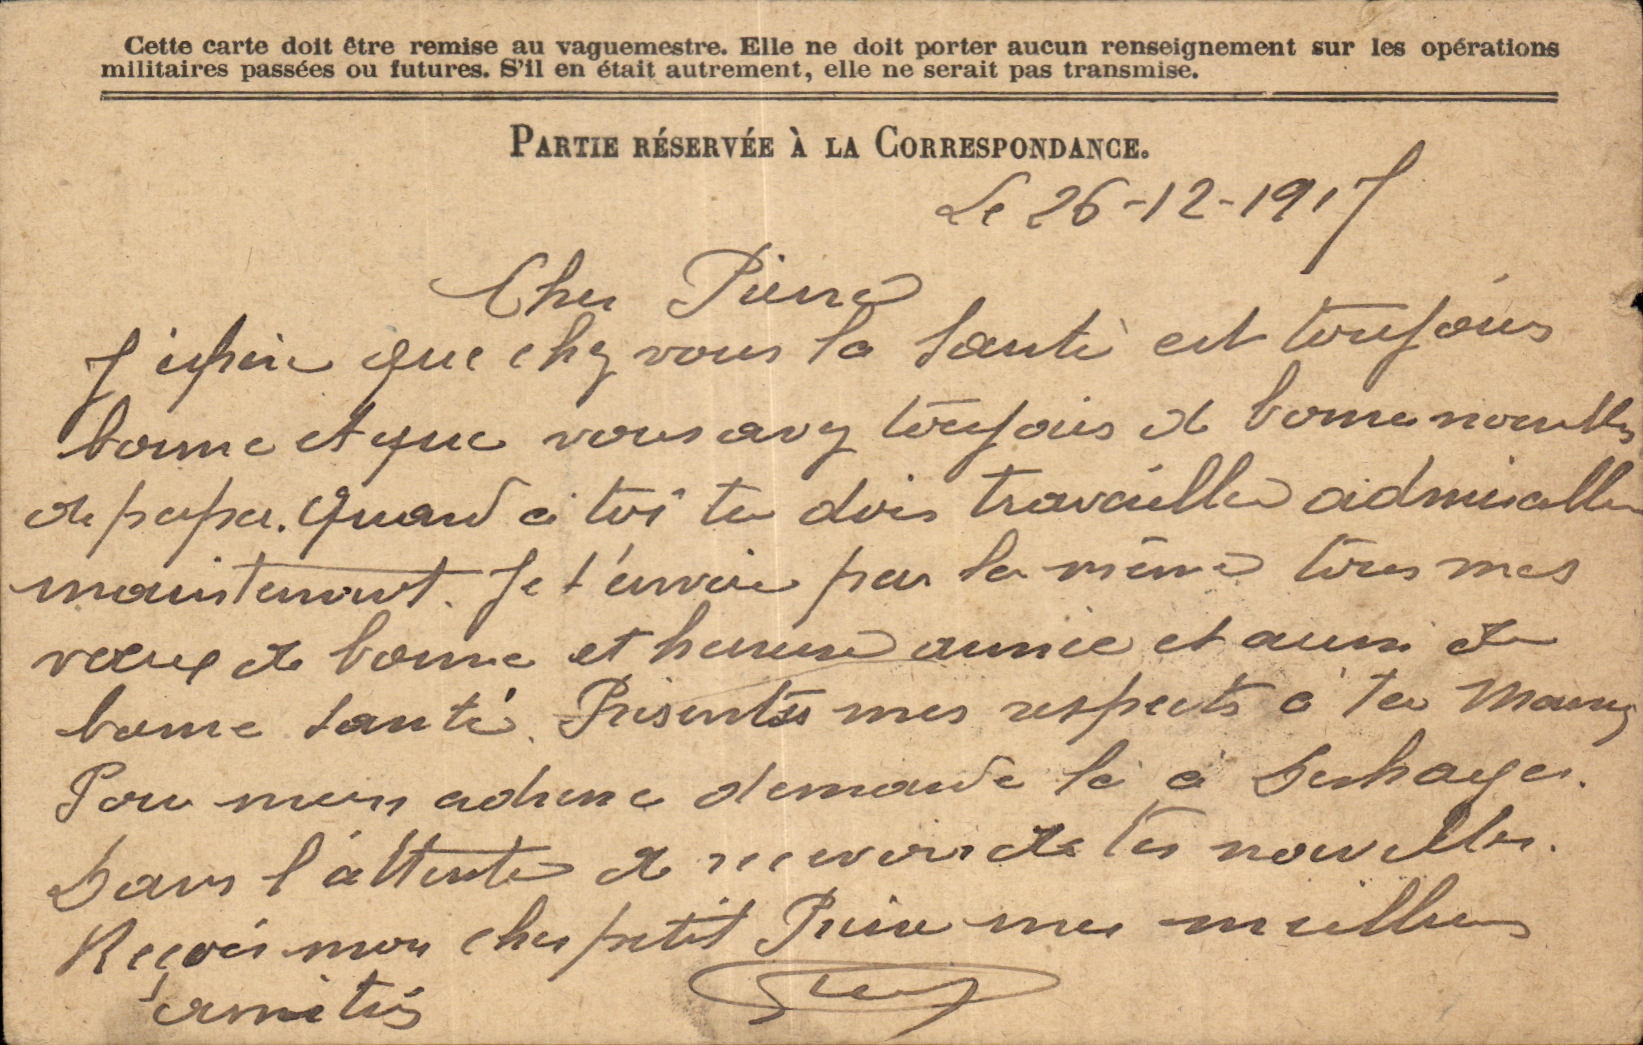 Cette carte doit être remise au vaguemestre. Elle ne doit porter aucun renseignement sur les opérations
militaires passées ou futures. S'il en était autrement, elle ne serait pas transmise.
PARTIE RÉSERVÉE À LA CORRESPONDANCE.
Le 26-12-1917
Cher Pierre
J'espère que chez vous la santé est toujours
bonne et que vous avez toujours de bonne nouvelles
de papa. Quand à toi tu dois travailler
maintenant. Je t'envoie par la même tous mes
vœux de bonne et heureuse année et aussi de
bonne santé. Présentes mes respects à ta Maman
Pour mon adresse demande là à Deshayes.
Dans l'attente de recevoir de tes nouvelles.
Reçois mon cher petit Pierre mes meilleurs
amitiés